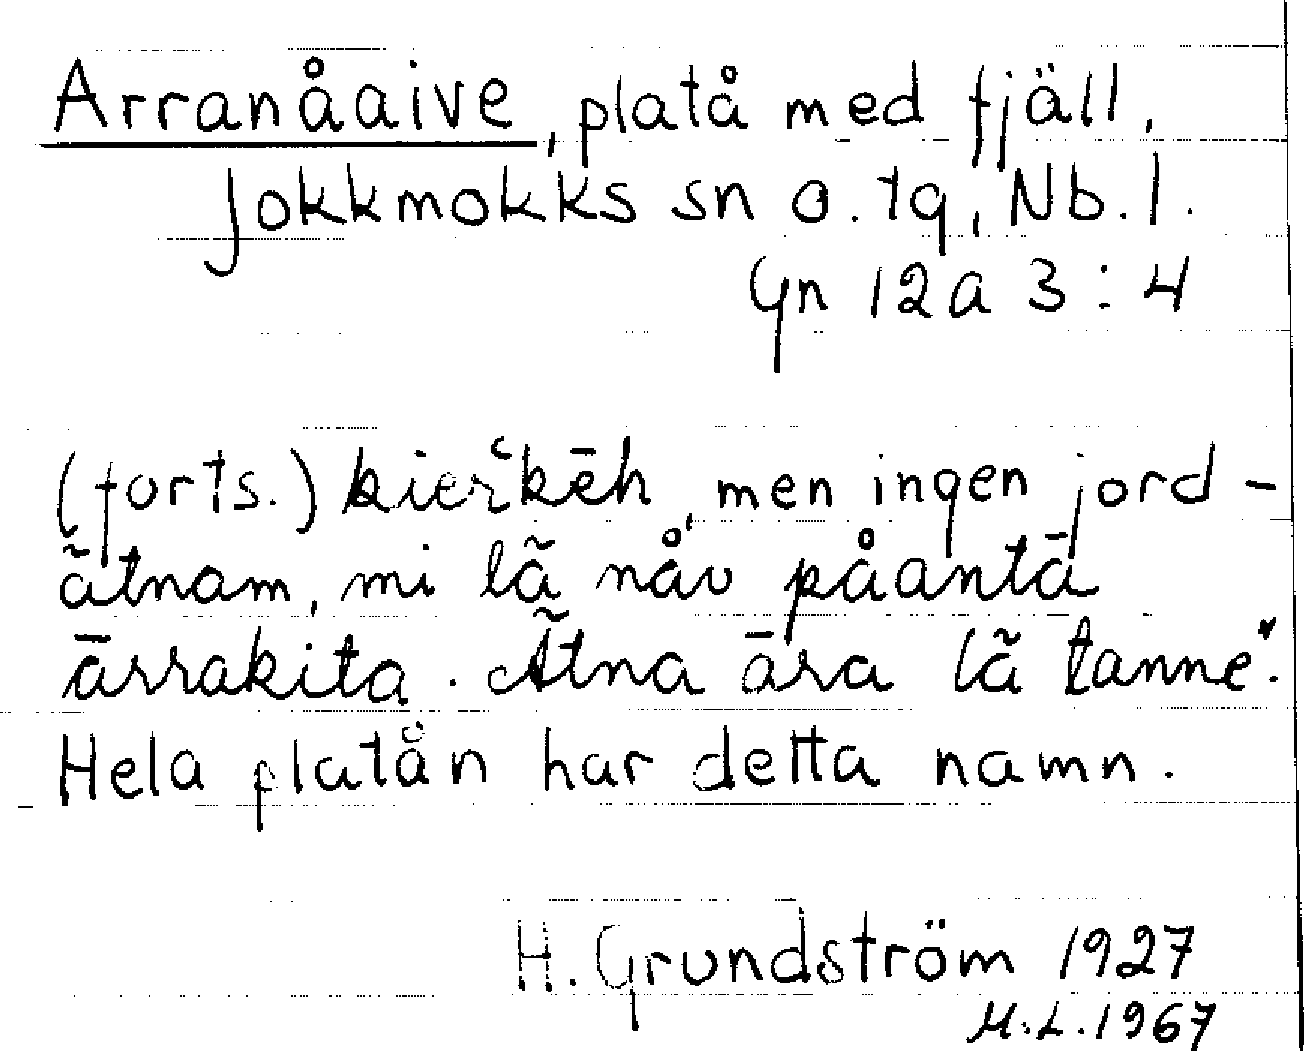 Arranåaive, platå med fjäll,
Jokkmokks sn o. tg, Nb. l.
Gn 12a 3:4
(forts.) kierʿkēh, men ingen jord-
ãtnam, mi lã nåv påantā
ārrakita. Ãtna āra lã tanne".
Hela platån har detta namn.
H. Grundström 1927
M.L. 1967